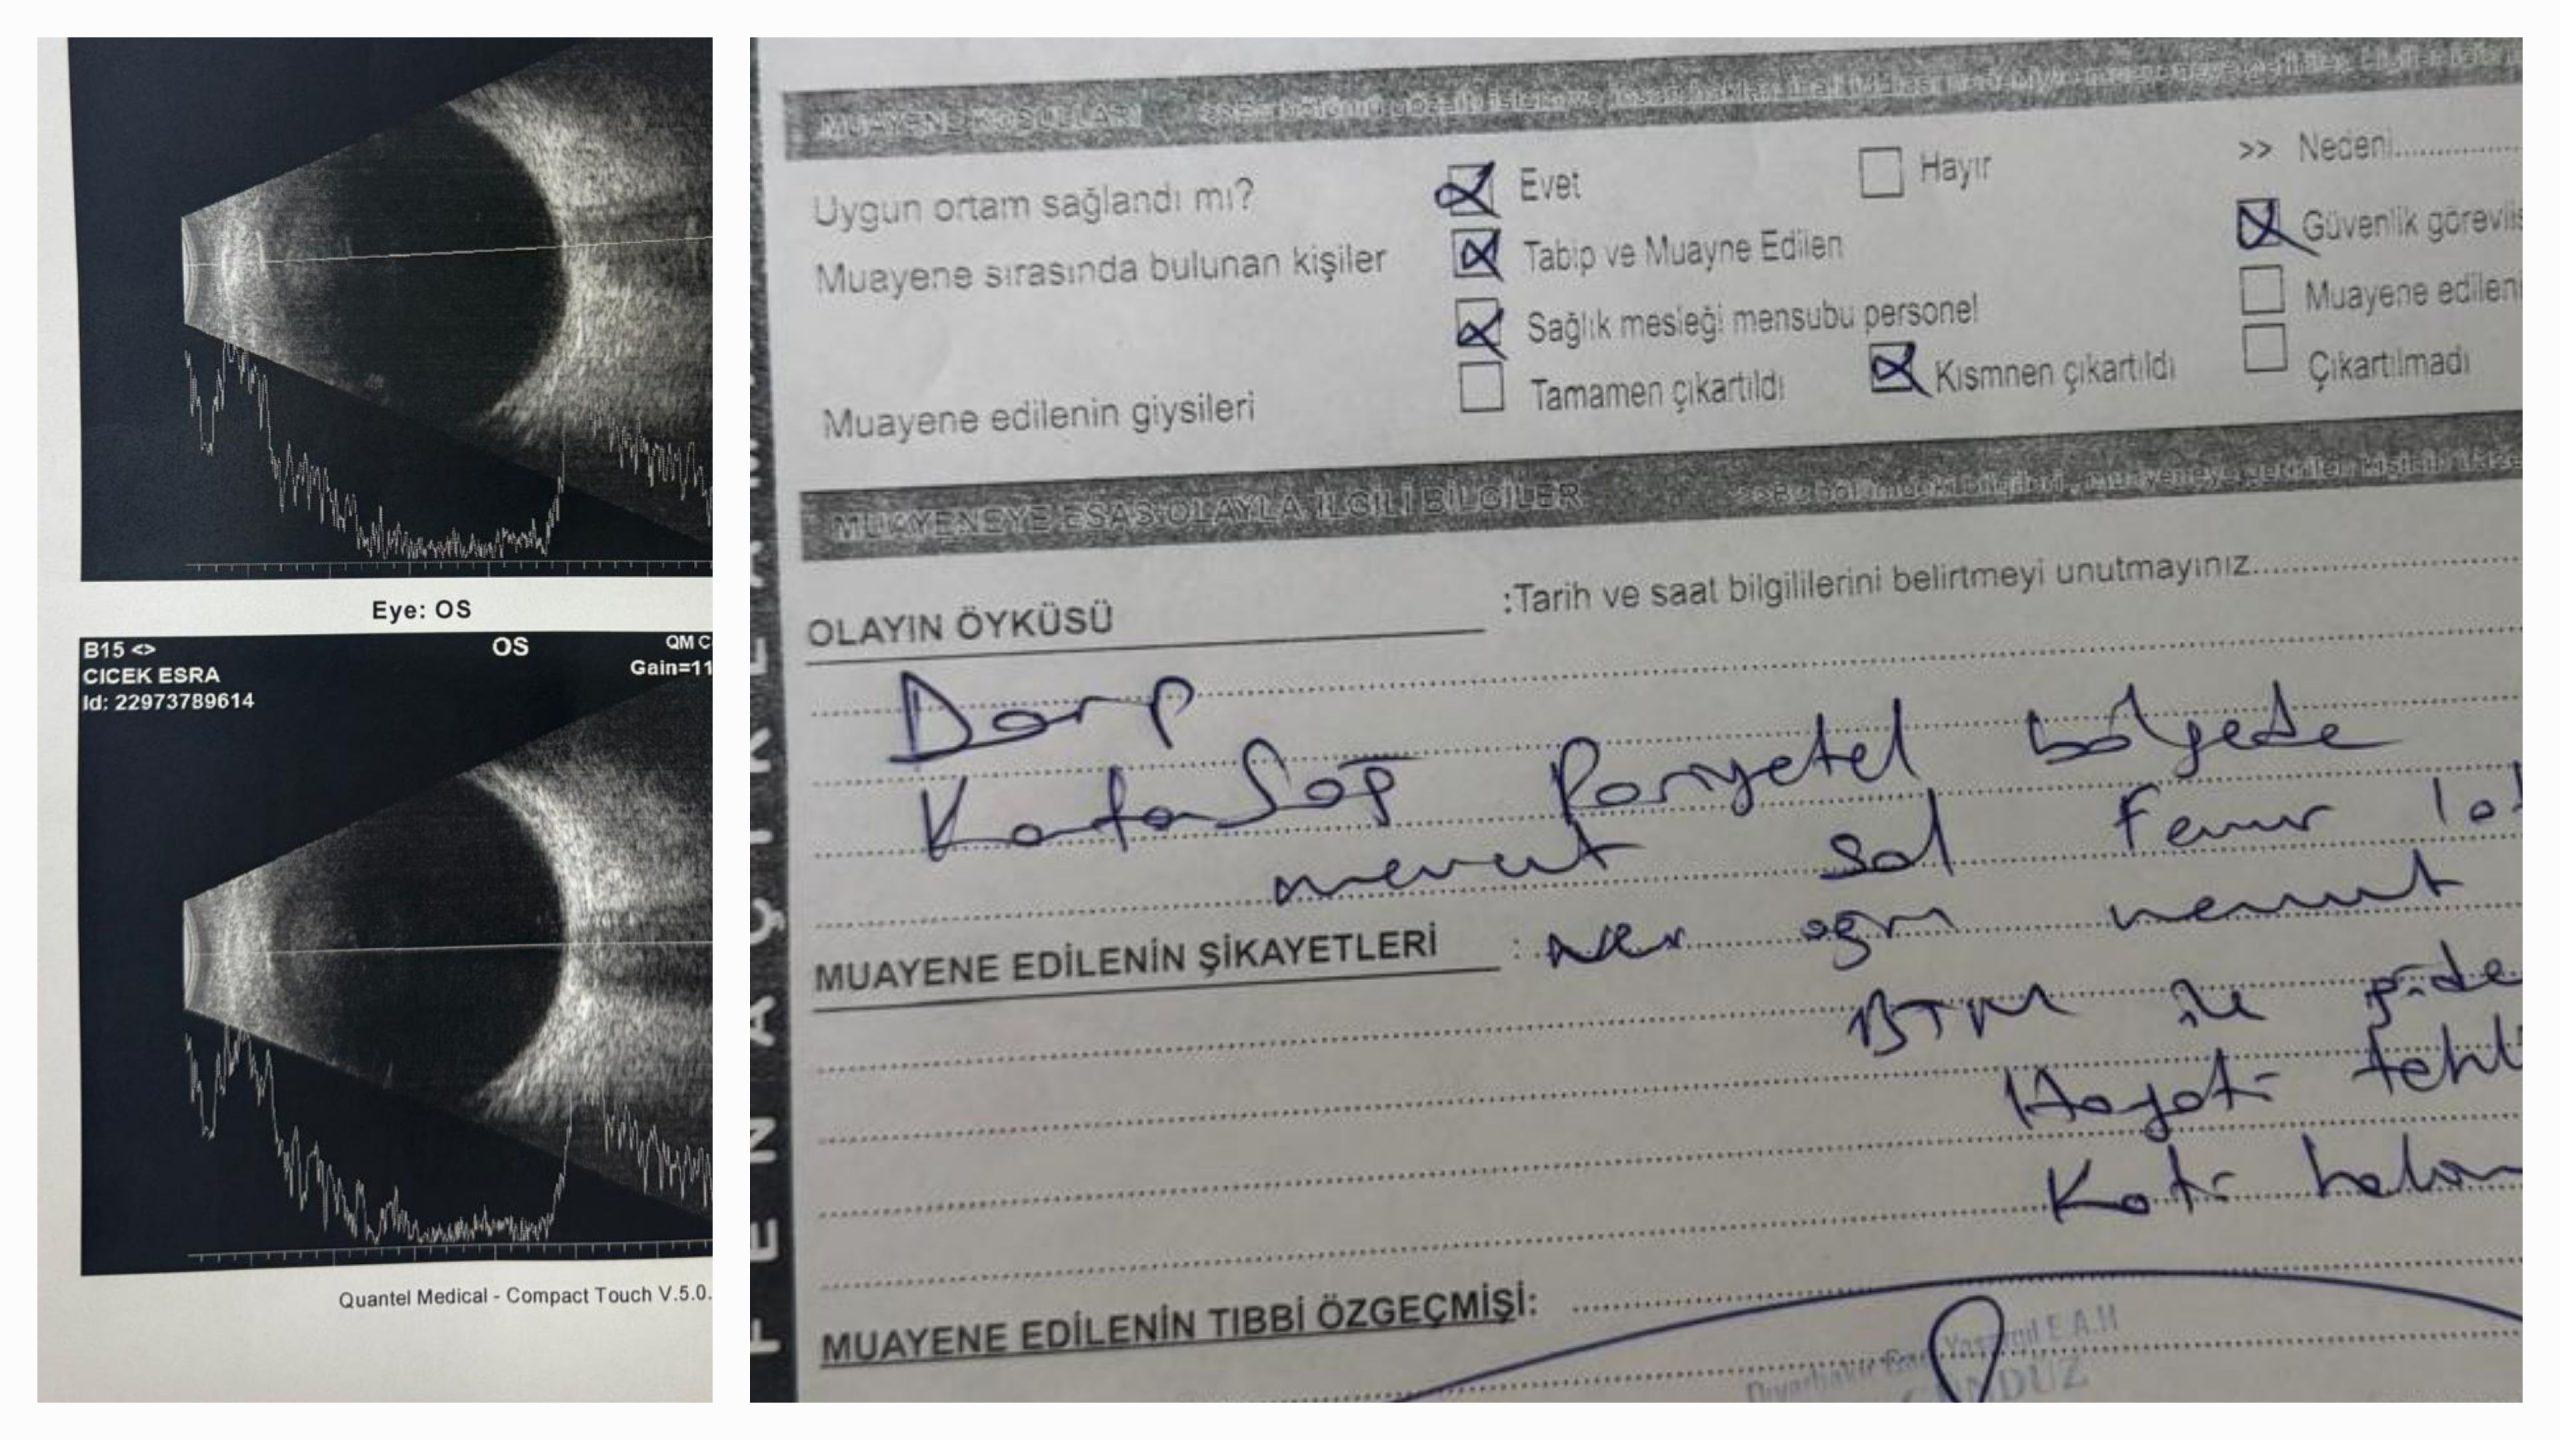 Eye: OS
B15 <> OS QM C
CICEK ESRA Gain=11
Id: 22973789614
Quantel Medical - Compact Touch V.5.0.
MUAYENE KOŞULLARI
Uygun ortam sağlandı mı? Evet Hayır >> Nedeni
Muayene sırasında bulunan kişiler Tabip ve Muayne Edilen Güvenlik görevlis
Sağlık mesleği mensubu personel Muayene edileni
Muayene edilenin giysileri Tamamen çıkartıldı Kısmnen çıkartıldı Çıkartılmadı
MUAYENEYE ESAS OLAYLA İLGİLİ BİLGİLER
OLAYIN ÖYKÜSÜ :Tarih ve saat bilgililerini belirtmeyi unutmayınız
Darp
Kafa Sağ Paryetel bölgede
mevcut sol Femur
MUAYENE EDİLENİN ŞİKAYETLERİ : ağrı mevcut
BTM ile gide
Hayati tehl
Kati
MUAYENE EDİLENİN TIBBİ ÖZGEÇMİŞİ:
Diyarbakır Yaşargil E.A.H
GÜNDÜZ